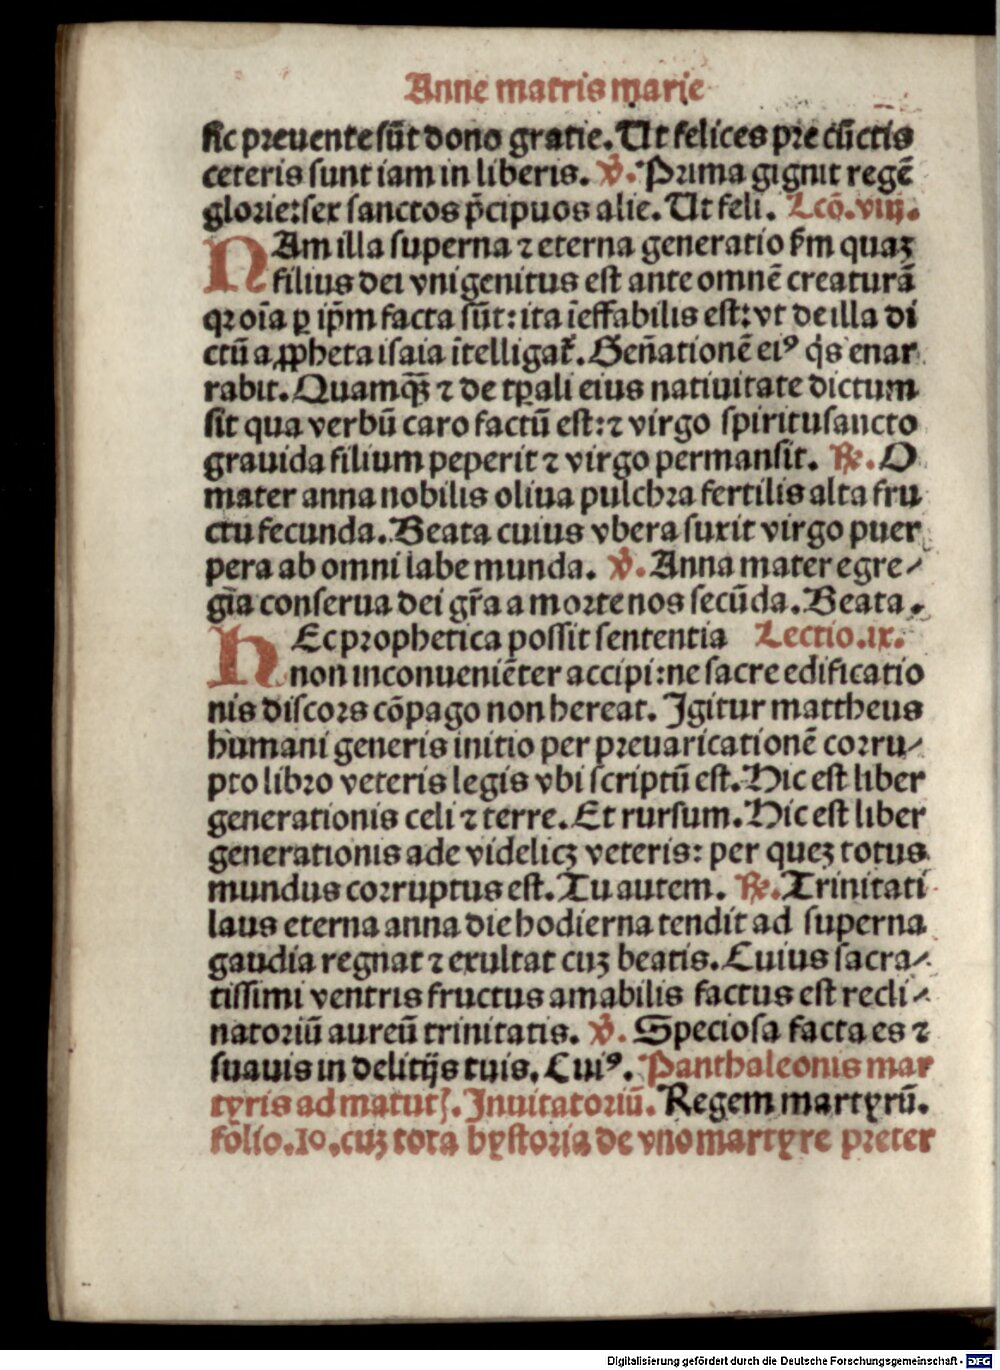 Anne matris marie
sic preuente sūt dono gratie. Ut felices pre cūctis
ceteris sunt iam in liberis. ℣. Prima gignit regē
glorie: sex sanctos p̄cipuos alie. Ut feli. Lcō. viij.
NAm illa superna ⁊ eterna generatio ẜm quaꝫ
filius dei vnigenitus est ante omnē creaturā
qꝛ oīa ꝑ ip̄m facta sūt: ita īeffabilis est: vt de illa di
ctū a ꝓpheta isaia ītelligat᷑. Gen̄ationē eiꝰ q̇s enar
rabit. Quamqͣꝫ ⁊ de tꝑali eius natiuitate dictum
sit qua verbū caro factū est: ⁊ virgo spiritusancto
grauida filium peperit ⁊ virgo permansit. ℞. O
mater anna nobilis oliua pulchra fertilis alta fru
ctu fecunda. Beata cuius vbera suxit virgo puer
pera ab omni labe munda. ℣. Anna mater egre-
gīa conserua dei gr̄a a morte nos secūda. Beata.
HEc prophetica possit sententia Lectio. ix.
non inconueniēter accipi: ne sacre edificatio
nis discors cōpago non hereat. Igitur mattheus
humani generis initio per preuaricationē corru-
pto libro veteris legis vbi scriptū est. Hic est liber
generationis celi ⁊ terre. Et rursum. Hic est liber
generationis ade videlicꝫ veteris: per queꝫ totus
mundus corruptus est. Tu autem. ℞. Trinitati
laus eterna anna die hodierna tendit ad superna
gaudia regnat ⁊ exultat cuꝫ beatis. Cuius sacra-
tissimi ventris fructus amabilis factus est recli-
natoriū aureū trinitatis. ℣. Speciosa facta es ⁊
suauis in delitijs tuis. Cuiꝰ. Panthaleonis mar
tyris ad matutꝭ. Inuitatoriū. Regem martyrū.
folio. 10. cuꝫ tota hystoria de vno martyre preter
Digitalisierung gefördert durch die Deutsche Forschungsgemeinschaft - DFG